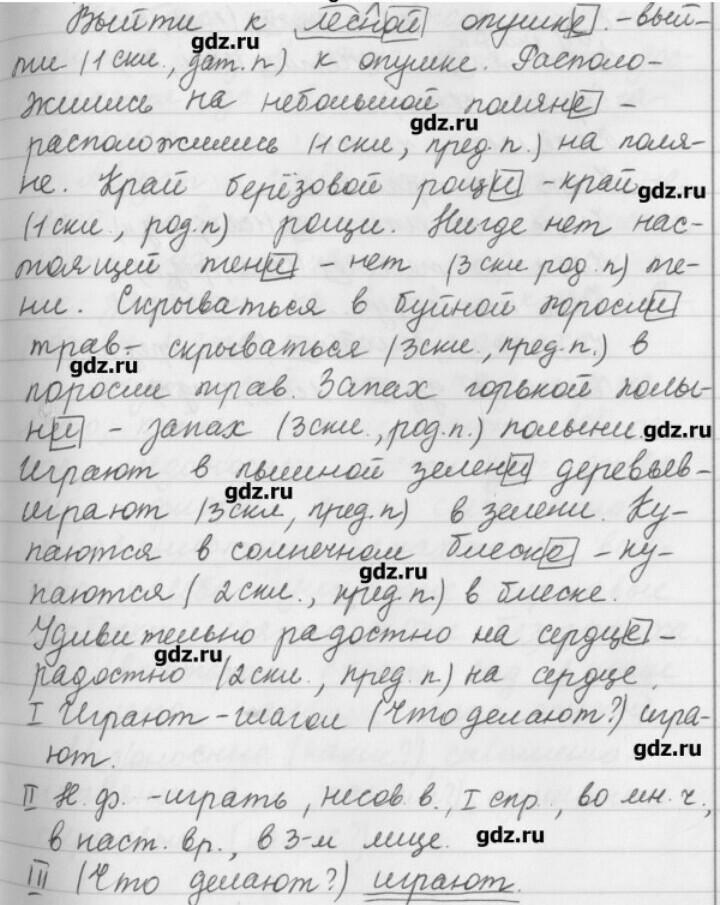 Выйти к лесной опушке. - вый-
gdz.ru
ти (1 скл., дат. п) к опушке. Располо-
жились на небольшой поляне -
gdz.ru
расположились (1 скл, пред. п.) на поля-
не. Край берёзовой рощи - край
gdz.ru
(1 скл., род. п) рощи. Нигде нет нас-
тоящей тени - нет (3 скл род. п) те-
ни. Скрываться в буйной поросли
трав - скрываться (3 скл., пред. п.) в
gdz.ru
поросли трав. Запах горькой полы-
ни - запах (3 скл., род. п.) полыни.
gdz.ru
Играют в пышной зелени деревьев -
gdz.ru
играют (3 скл, пред. п) в зелени. Ку-
паются в солнечном блеске - ку-
gdz.ru
паются (2 скл., пред. п.) в блеске.
Удивительно радостно на сердце -
gdz.ru
радостно (2 скл., пред. п.) на сердце.
I Играют - глагол (Что делают?) игра-
ют.
gdz.ru
II Н. ф. - играть, несов. в., I спр., во мн. ч.,
в наст. вр., в 3-м лице.
gdz.ru
III (Что делают?) играют.